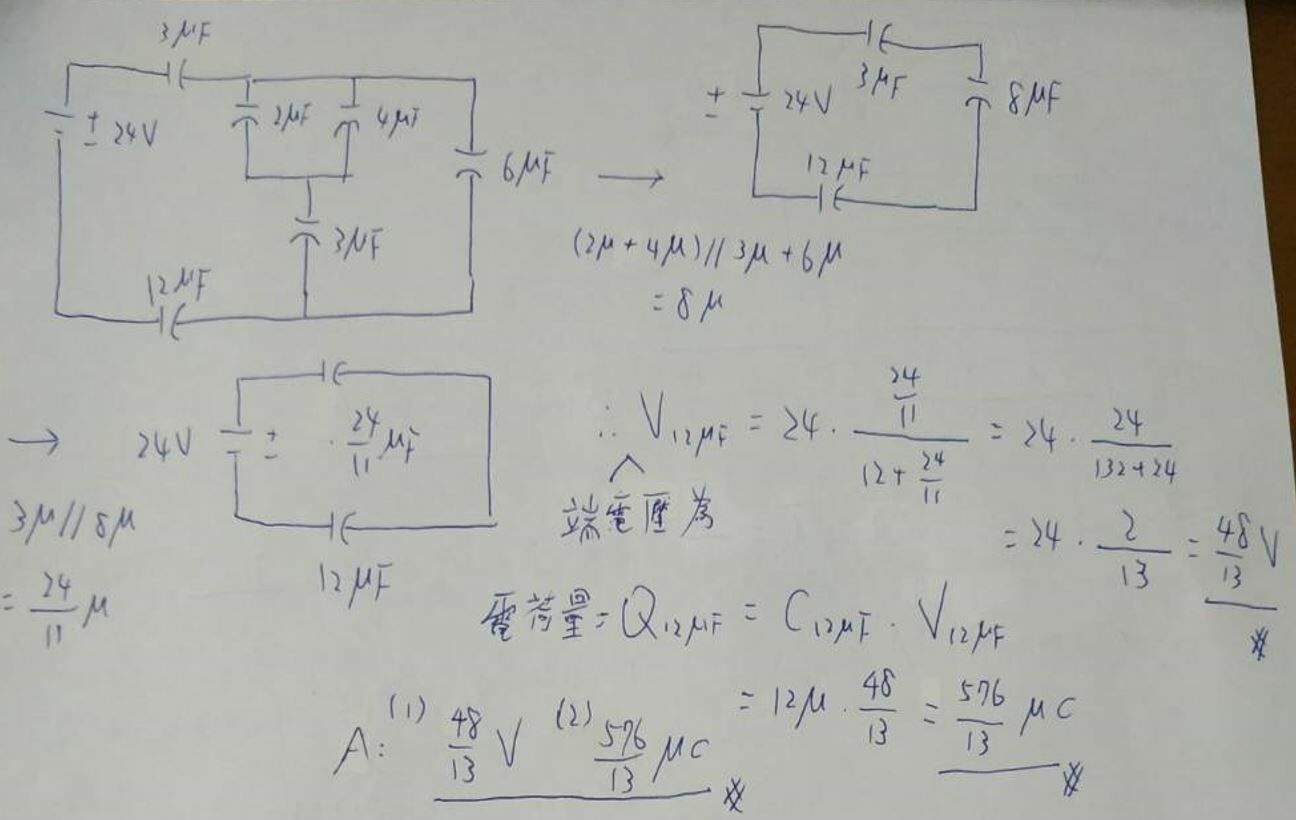 3μF
± 24V
2μF 4μF
6μF
3μF
12μF
→
3μF
± 24V
8μF
12μF
(2μ+4μ)//3μ+6μ
=8μ
→ 24V ±
24/11 μF
12μF
3μ//8μ
= 24/11 μ
∴ V₁₂μF = 24 · (24/11)/(12+24/11) = 24 · 24/(132+24)
端電壓為
= 24 · 2/13 = 48/13 V
電荷量= Q₁₂μF = C₁₂μF · V₁₂μF
= 12μ · 48/13 = 576/13 μC
A: (1) 48/13 V (2) 576/13 μC